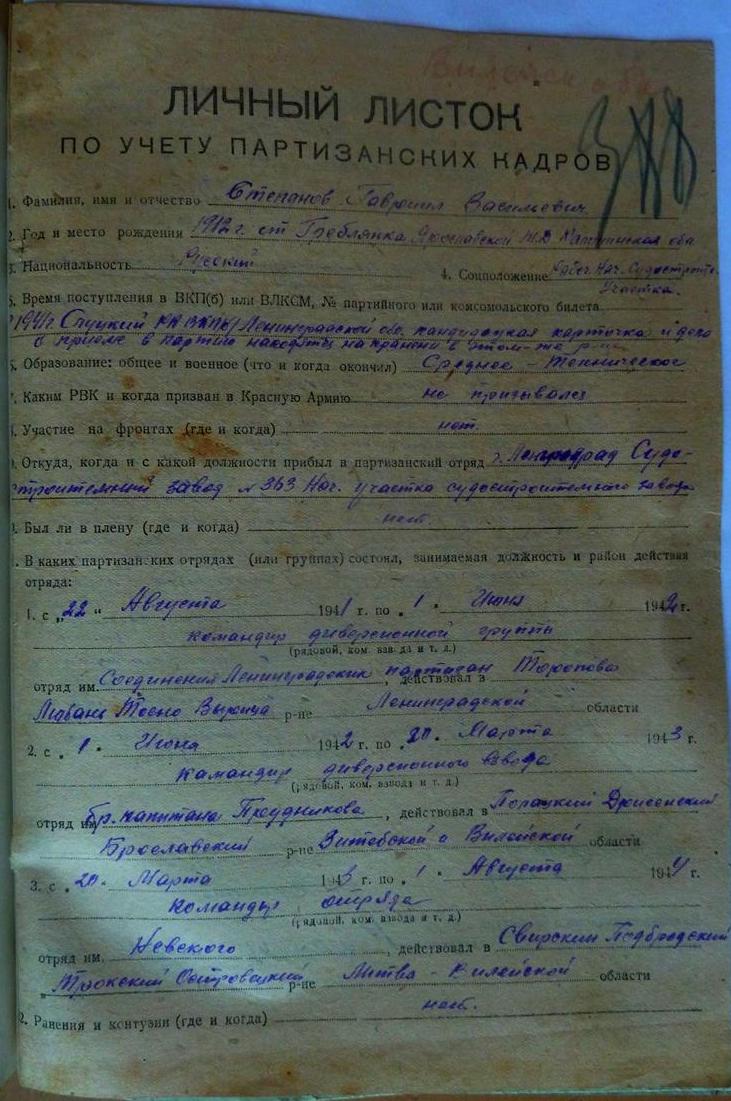 Вилейск обл
ЛИЧНЫЙ ЛИСТОК
ПО УЧЕТУ ПАРТИЗАНСКИХ КАДРОВ
1. Фамилия, имя и отчество Степанов Гавриил Васильевич
2. Год и место рождения 1912 г. ст Греблянка Ярославской Ж.Д. обл
3. Национальность Русский 4. Соцположение рабоч. Нач. Судостроит.
Участка.
5. Время поступления в ВКП(б) или ВЛКСМ, № партийного или комсомольского билета
1941г. Слуцкий РК ВКП(б) Ленинградской обл. кандидатская карточка и дело
о приеме в партию находятся на хранении в этом-же р-не
6. Образование: общее и военное (что и когда окончил) Среднее - Техническое
7. Каким РВК и когда призван в Красную Армию не призывался
8. Участие на фронтах (где и когда) нет.
9. Откуда, когда и с какой должности прибыл в партизанский отряд г. Ленинград Судо-
строительный завод № 363 Нач. участка судостроительного завода
10. Был ли в плену (где и когда) нет.
11. В каких партизанских отрядах (или группах) состоял, занимаемая должность и район действия
отряда:
1. с „22" Августа 1941 г. по „1" Июня 1942 г.
командир диверсионной группы
(рядовой, ком. взвода и т. д.)
отряд им. Соединения Ленинградских партизан, действовал в Торопова
Любань Тосно Вырица р-не Ленинградской области
2. с „1" Июня 1942 г. по „20" Марта 1943 г.
командир диверсионного взвода
(рядовой, ком. взвода и т. д.)
отряд им. бр. капитана Прудникова, действовал в Полоцкий Дрисенский
Брославский р-не Витебской и Вилейской области
3. с „20" Марта 1943 г. по „1" Августа 1944 г.
командир отряда
(рядовой, ком. взвода и т. д.)
отряд им. Невского, действовал в Свирский Подбродский
Трокский Островецкий р-не Литва - Вилейской области
12. Ранения и контузии (где и когда) нет.